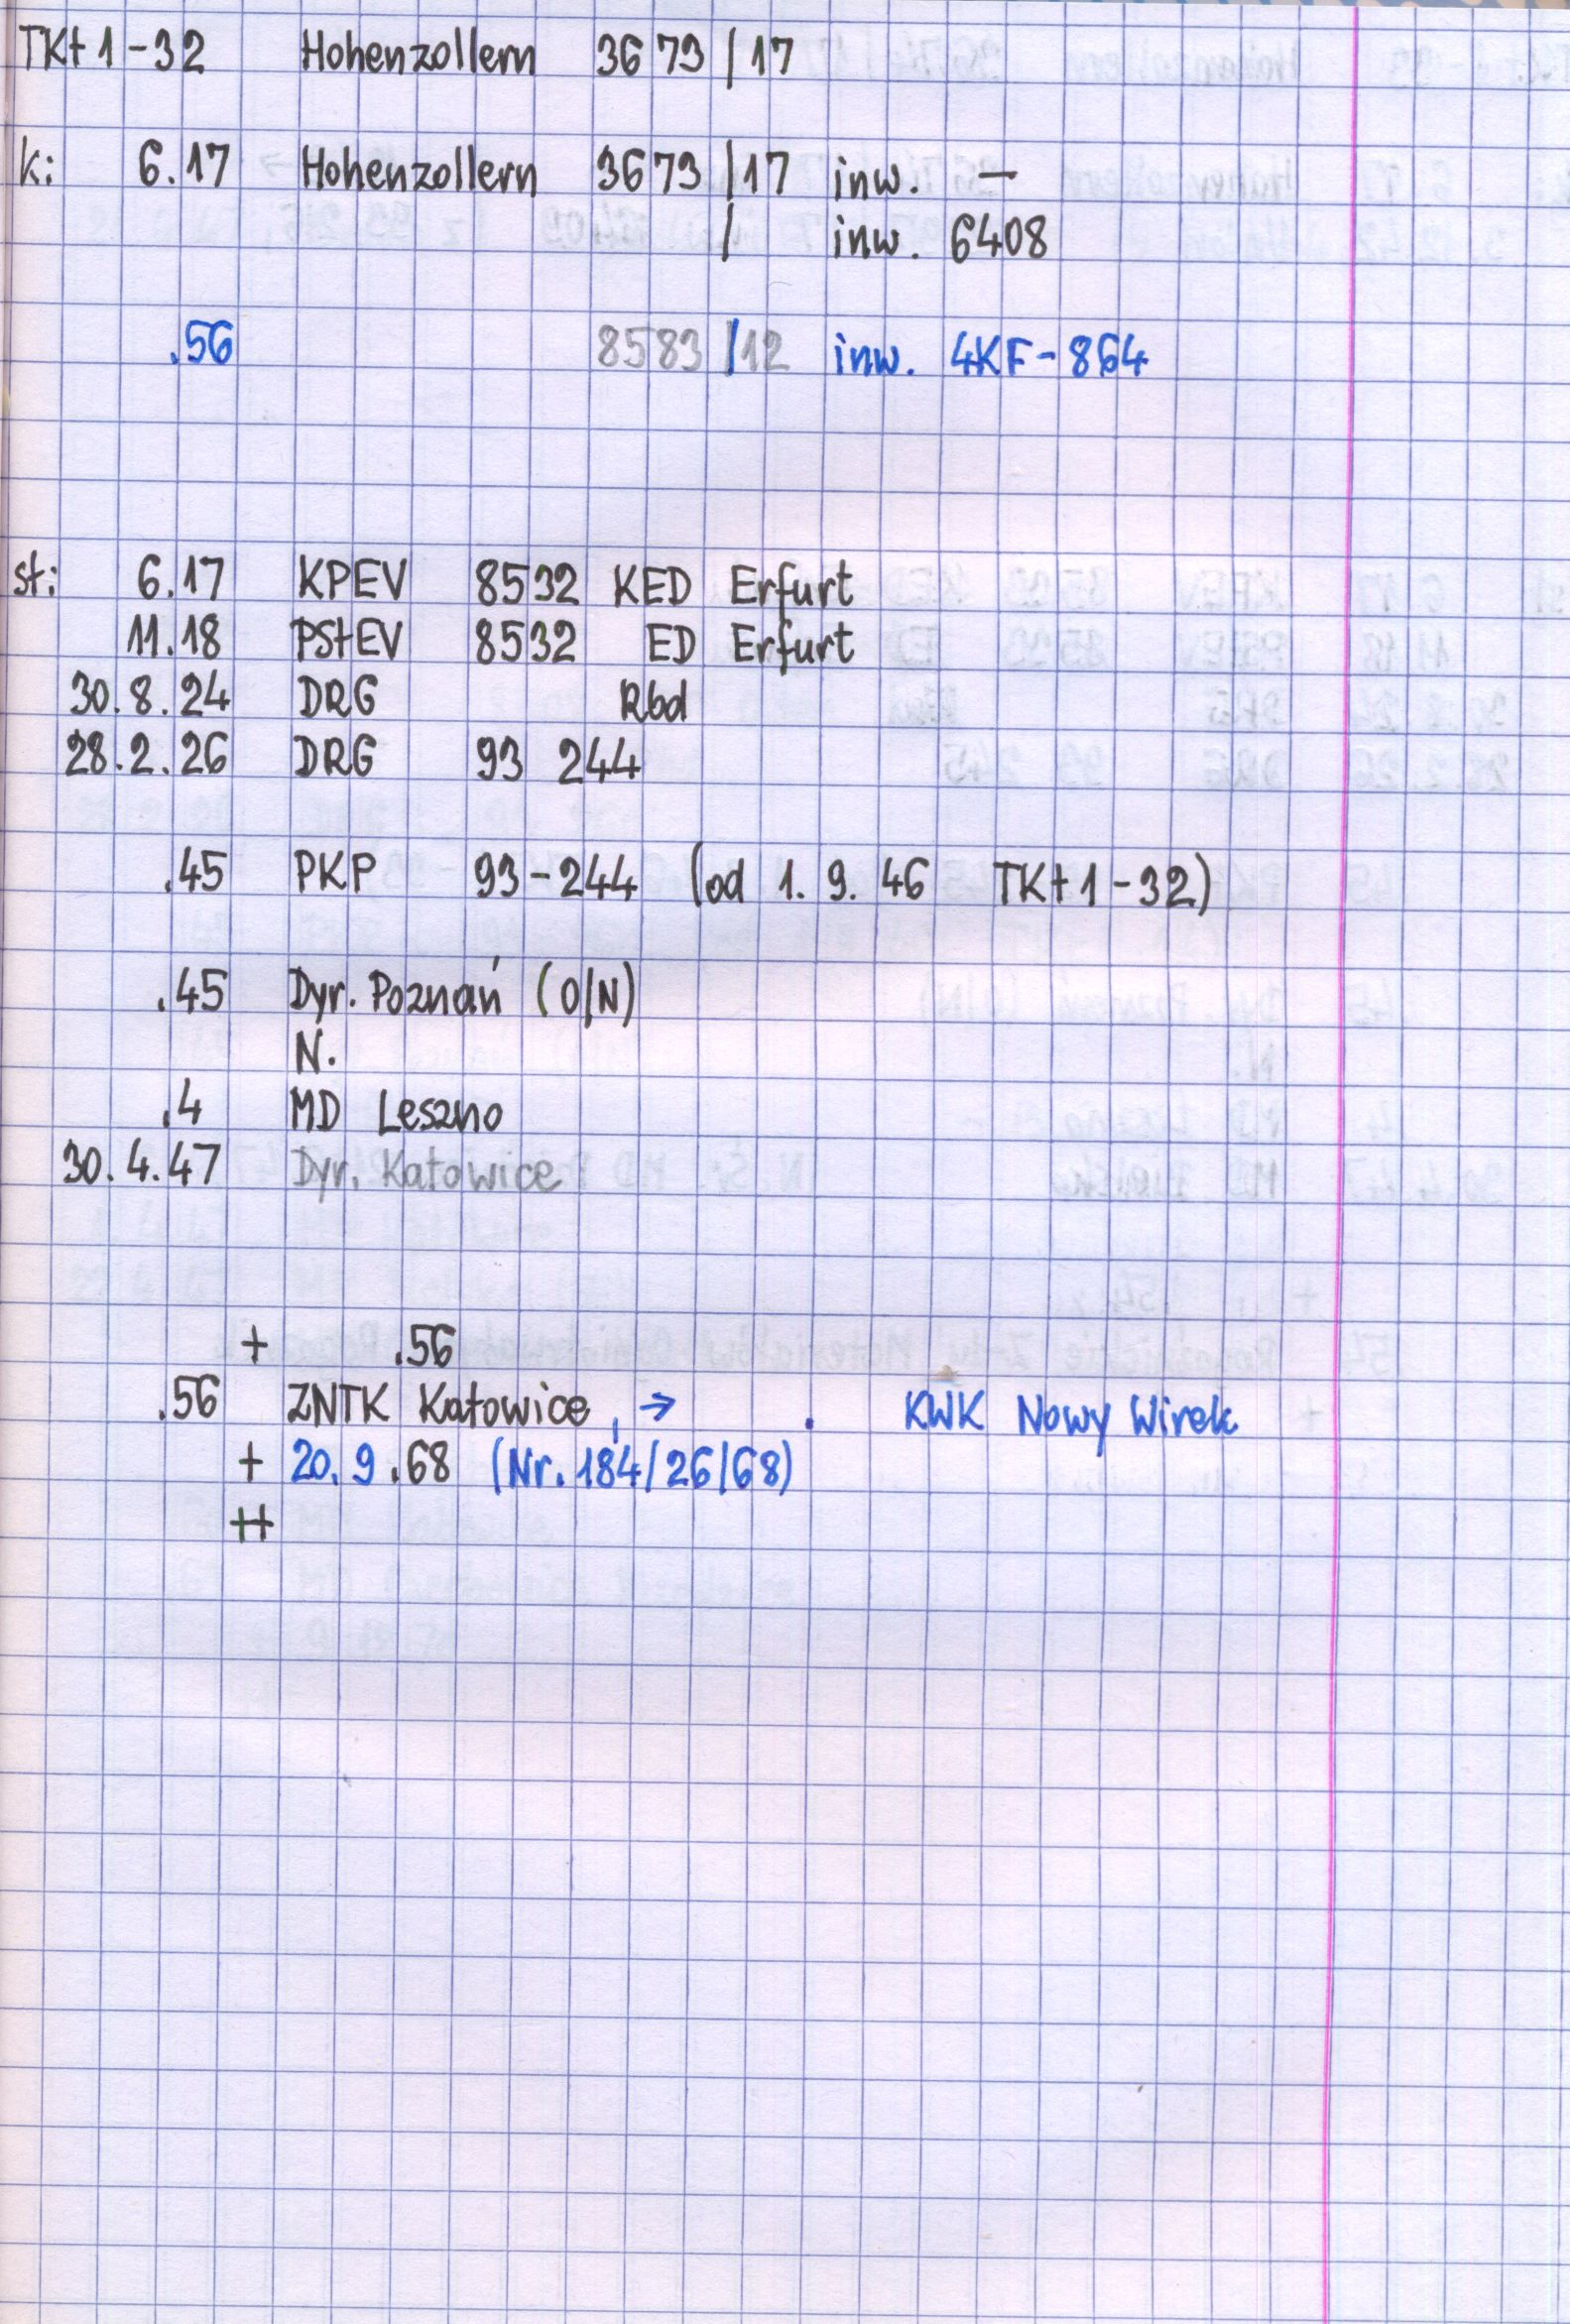 TKt1-32 Hohenzollern 3673/17
k: 6.17 Hohenzollern 3673/17 inw. —
/ inw. 6408
.56 8583/12 inw. 4KF-864
st: 6.17 KPEV 8532 KED Erfurt
11.18 PStEV 8532 ED Erfurt
30.8.24 DRG Rbd
28.2.26 DRG 93 244
.45 PKP 93-244 (od 1.9.46 TKt1-32)
.45 Dyr. Poznań (O/N)
N.
.4 MD Leszno
30.4.47 Dyr. Katowice
+ .56
.56 ZNTK Katowice, → . KWK Nowy Wirek
+ 20.9.68 (Nr. 184/26/68)
++